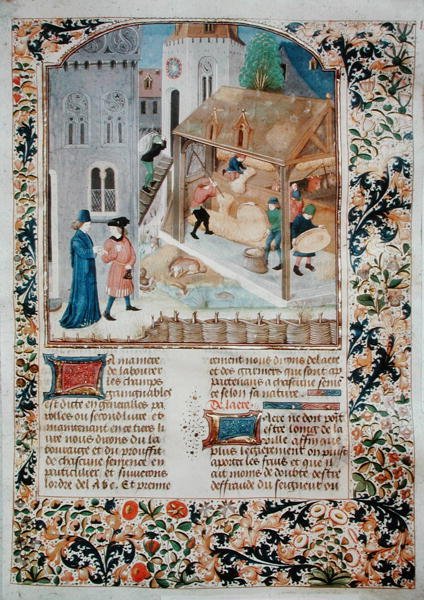 La maniere
de labourer
les champs
gaingnables
est dicte en generalles pa
rolles ou second liure et
maintenant en ce tiers li
ure nous dirons du la
bourage et du prouffit
de chascune semence en
particulier et suiurons
lordre del A b c. Et premie
rement nous dirons de laere
et des garniers qui sont ap
partenans a chascune semen
ce selon sa nature.
De laere.
Laere ne doit pas
estre loing de la
ville affin que
plus legierement on puist
aporter les fruis et que il
ait moins de doubte destre
deffraude du seigneur ou